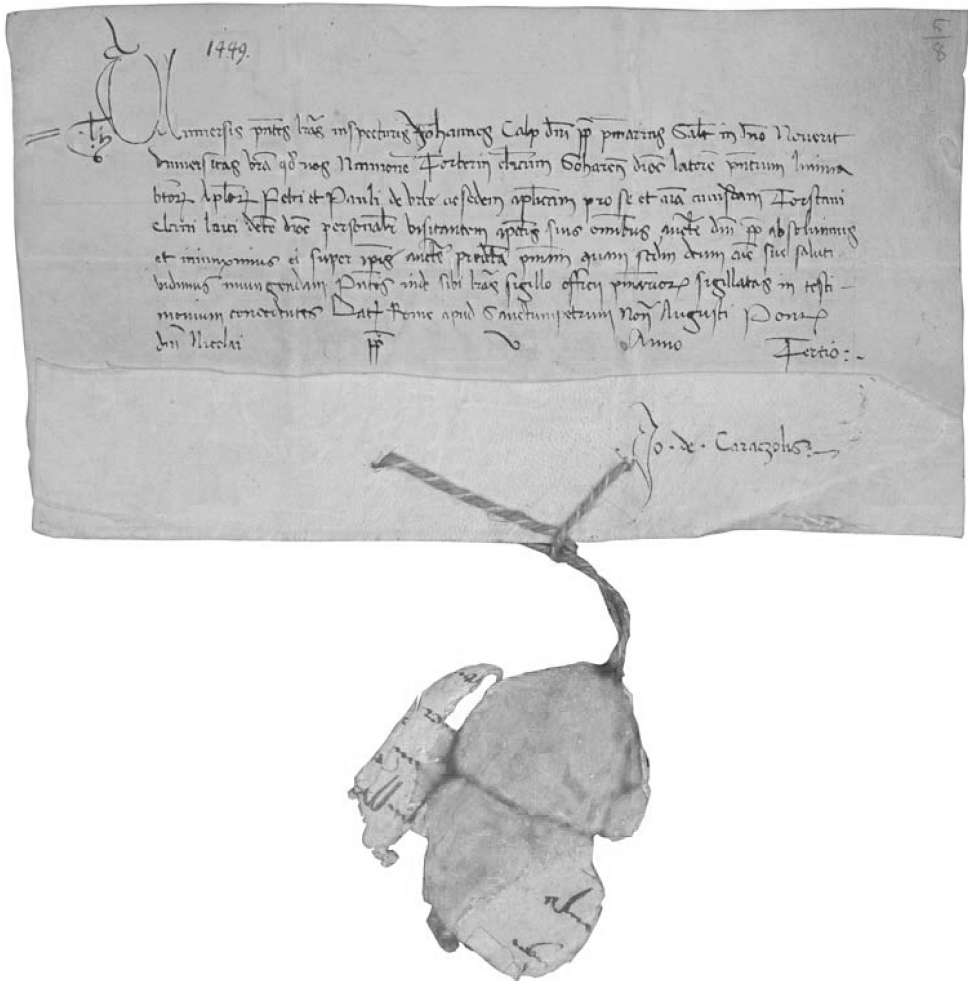 1449.
5/8
Vniuersis pn̄tes lr̄as inspecturis Johannes Calp dn̄i pp̄ pn̄iarius Salt̄ in dn̄o Nouerit
vniuersitas vr̄a qd̄ nos Torberin cl̄icum dioc̄ latorē pn̄tium limina
btōrꝝ Apl̄orꝝ Petri et Pauli de vrbe ac sedem apl̄icam pro se et aīa cuiusdam Torstani
laici dc̄te dioc̄ personalr̄ visitantem a pc̄tis suis omnibus auct̄e dn̄i pp̄ absoluimus
et iniunximus ei super ip̄is auct̄e predc̄ta pn̄iam quam scd̄m deum aīe sue saluti
vidimus iniungendam Pn̄tes inde sibi lr̄as sigillo officii pn̄iariorꝝ sigillatas in testi-
monium concedentes Dat̄ Rome apud Sanctumpetrum Noñ Augusti Pont̄
dn̄i Nicolai pp̄ v Anno Tertio:-
Jo · de · Caraczolis:-